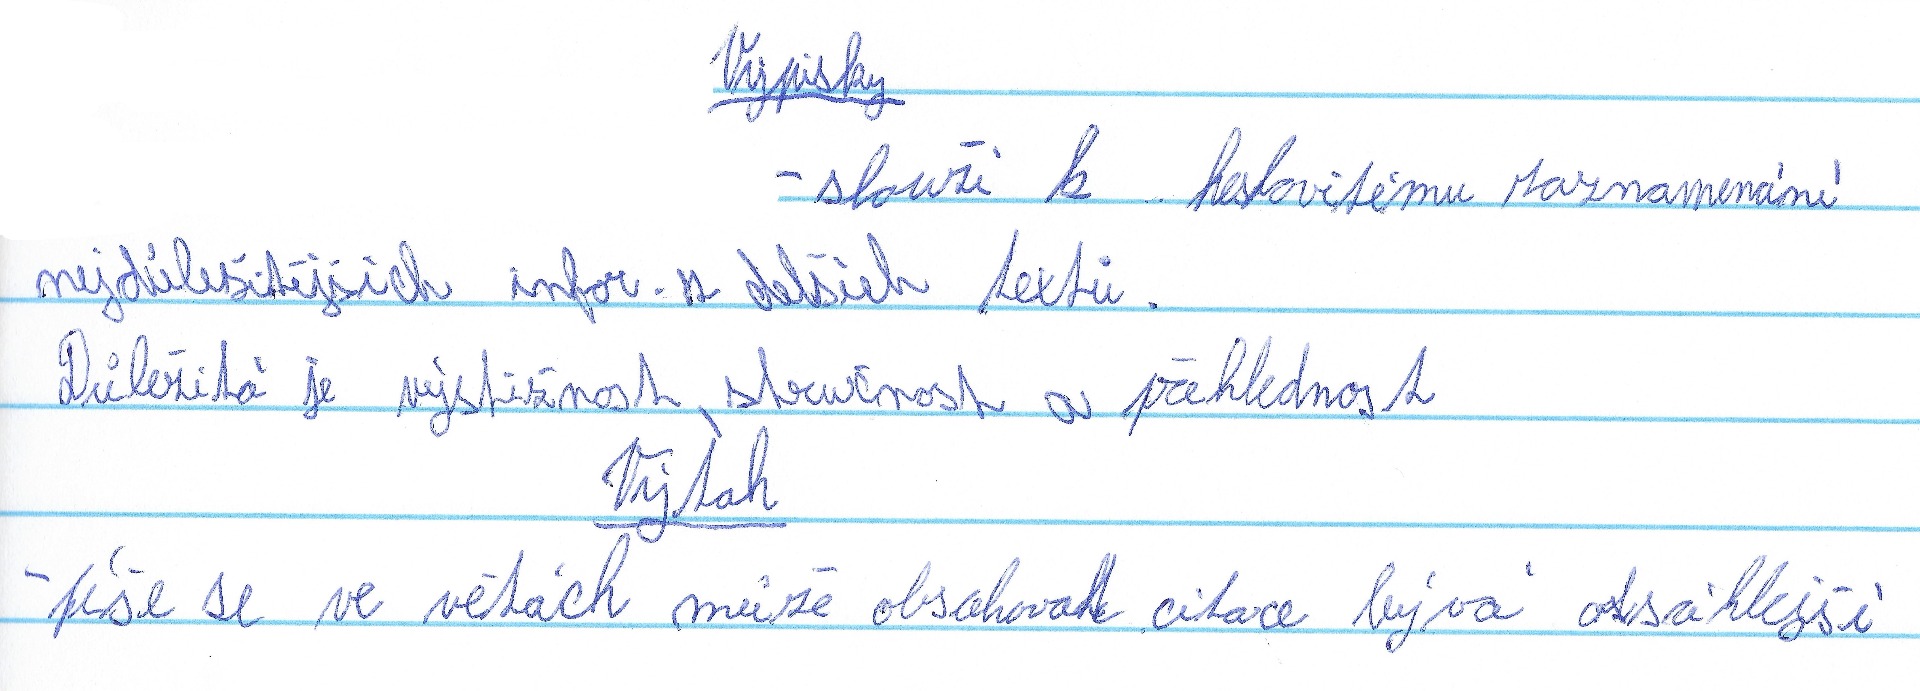 Výpisky
- slouží k heslovitému zaznamenání
nejdůležitějších infor. z delších textů.
Důležitá je výstižnost, stručnost a přehlednost
Výtah
- píše se ve větách může obsahovat citace bývá obsáhlejší